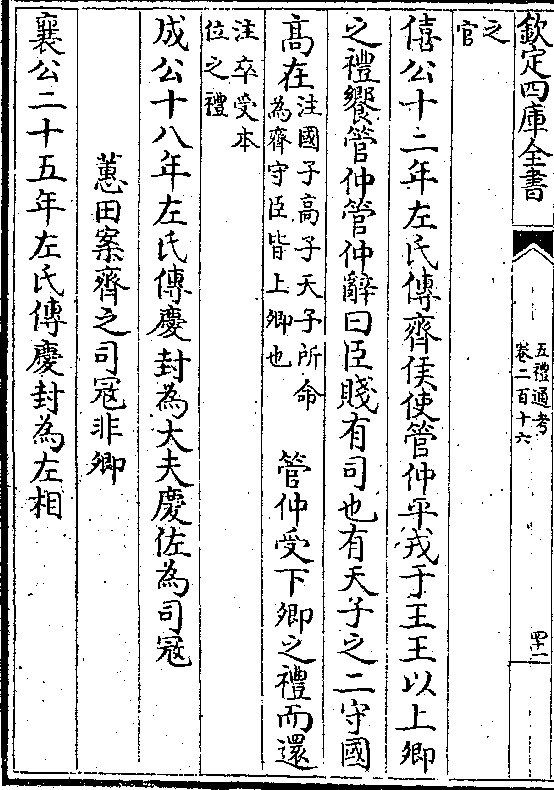 欽定四庫全書
五禮通考
卷二百十六
四十一
之
官
僖公十二年左氏傳齊侯使管仲平戎于王王以上卿
之禮饗管仲管仲辭曰臣賤有司也有天子之二守國
高在
注國子高子天子所命
為齊守臣皆上卿也
管仲受下卿之禮而還
注卒受本
位之禮
成公十八年左氏傳慶封為大夫慶佐為司寇
蕙田案齊之司寇非卿
襄公二十五年左氏傳慶封為左相